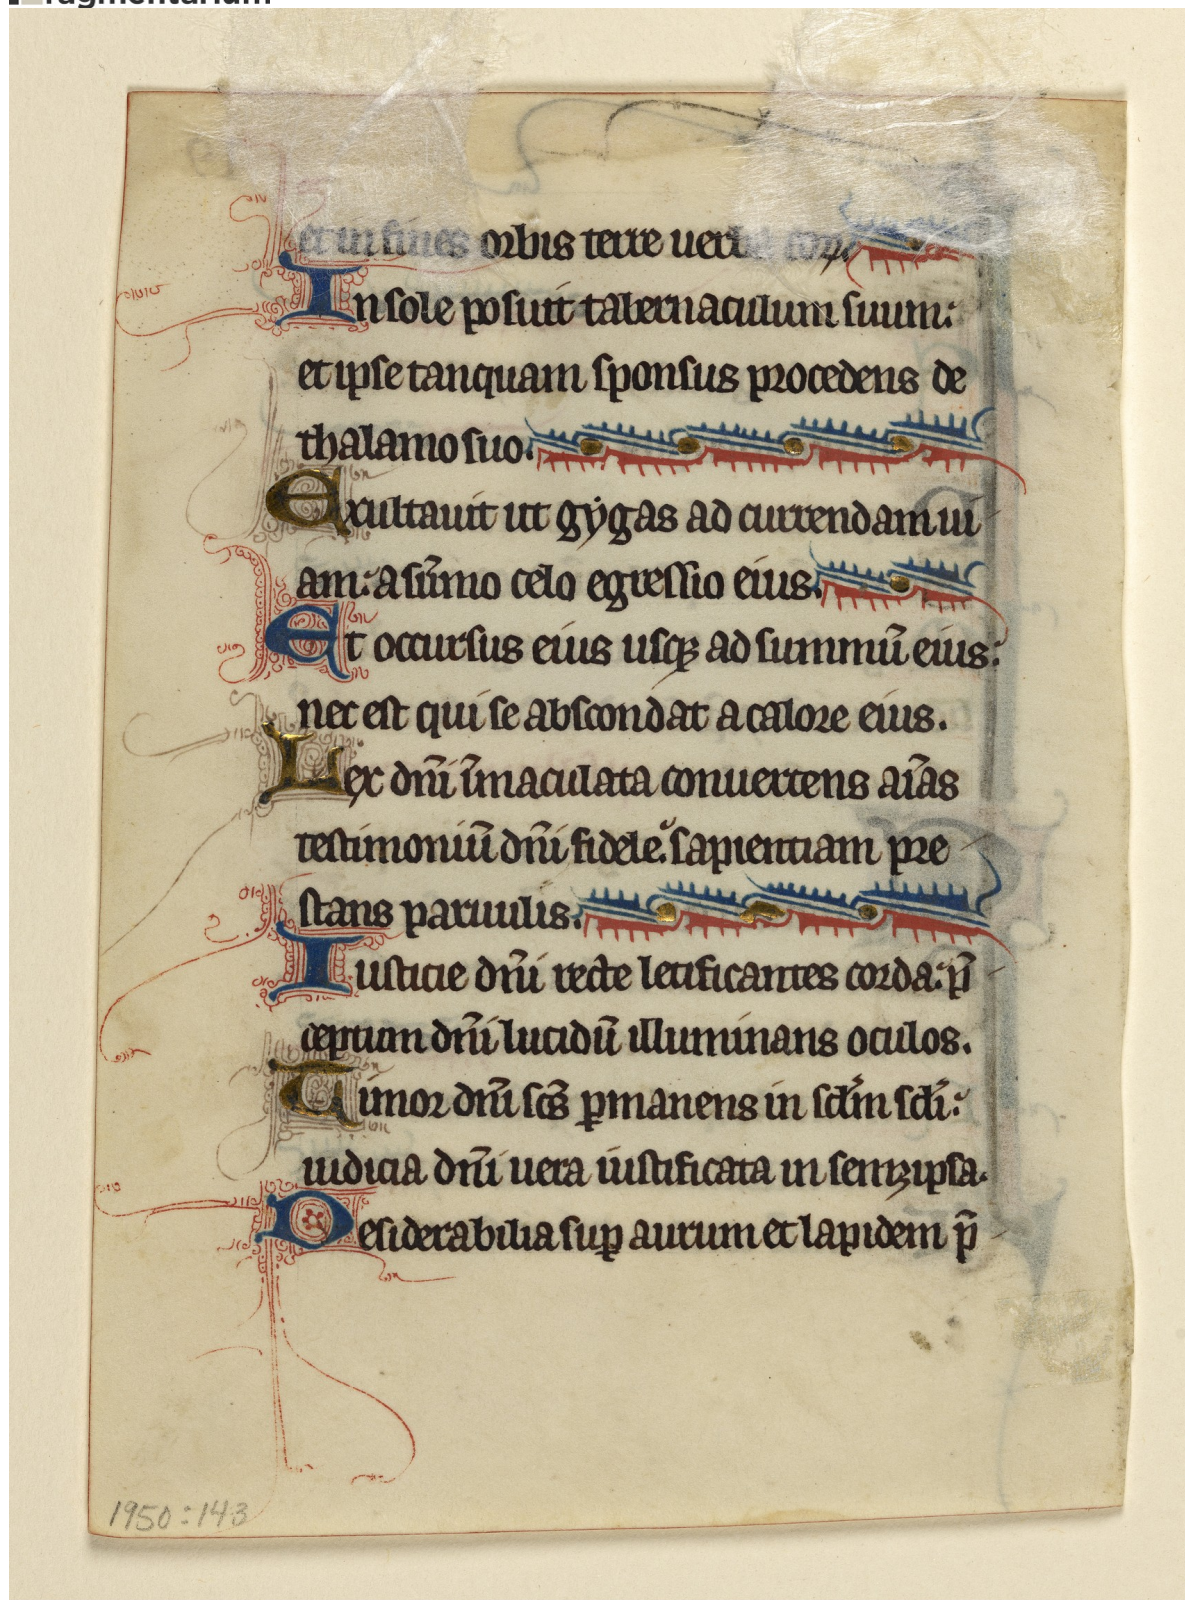 fragmentarium
et in fines orbis terre uerba eoꝝ.
In sole posuit tabernaculum suum:
et ipse tanquam sponsus procedens de
thalamo suo.
Exultauit ut gẏgas ad currendam ui
am: a sūmo celo egressio eius.
Et occursus eius usqꝫ ad summū eius:
nec est qui se abscondat a calore eius.
Lex dn̄i īmaculata conuertens aīas
testimoniū dn̄i fidele: sapientiam pre
stans paruulis.
Iusticie dn̄i recte letificantes corda: p̄
ceptum dn̄i lucidū illuminans oculos.
Timor dn̄i sc̄s ꝑmanens in scl̄m scl̄i:
iudicia dn̄i uera iustificata in semꝫipsa.
Desiderabilia suꝑ aurum et lapidem p̄
1950:143